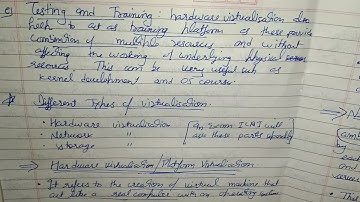 c) Testing and Training: hardware virtualisation also
help to act as training platform as these provide
combination of multiple resources and without
affecting the working of underlying physical
resources. This can be very useful such as
kernel development and OS course.
* Different Types of virtualisation.
• Hardware virtualisation [In exam will
• Network " ask these parts
• Storage "
⇒ Hardware virtualisation / Platform Virtualisation.
• It refers to the creation of virtual machine that
act like a real computer with an operating system